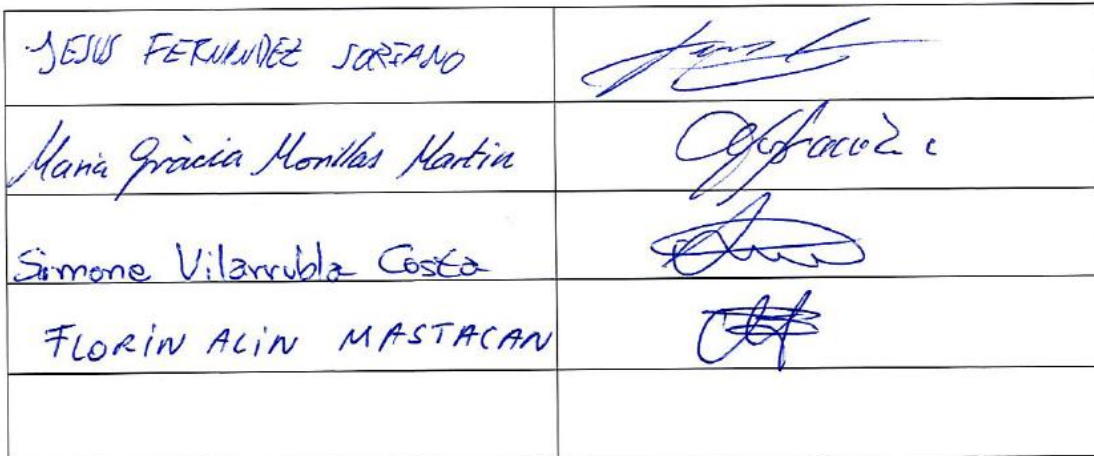 JESUS FERNANDEZ SORIANO
Maria Gràcia Morillas Martin
Simone Vilarrubla Costa
FLORIN ALIN MASTACAN